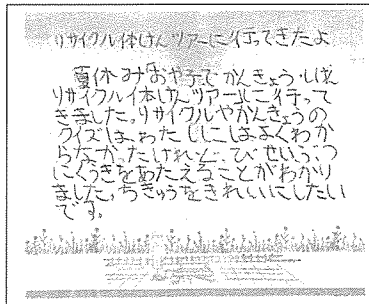 リサイクル体けんツアーに行ってきたよ
夏休みおや子でかんきょう・しげん
リサイクル体けんツアーに行って
きました。リサイクルやかんきょうの
クイズは、わたしにはよくわか
らなかったけれど、びせいぶつ
にくうきをあたえることがわかり
ました。ちきゅうをきれいにしたい
です。